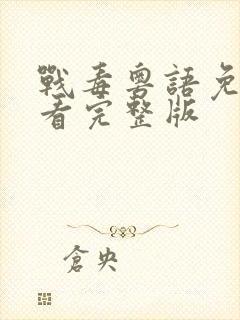 戰毒粵語免
看完整版
倉央